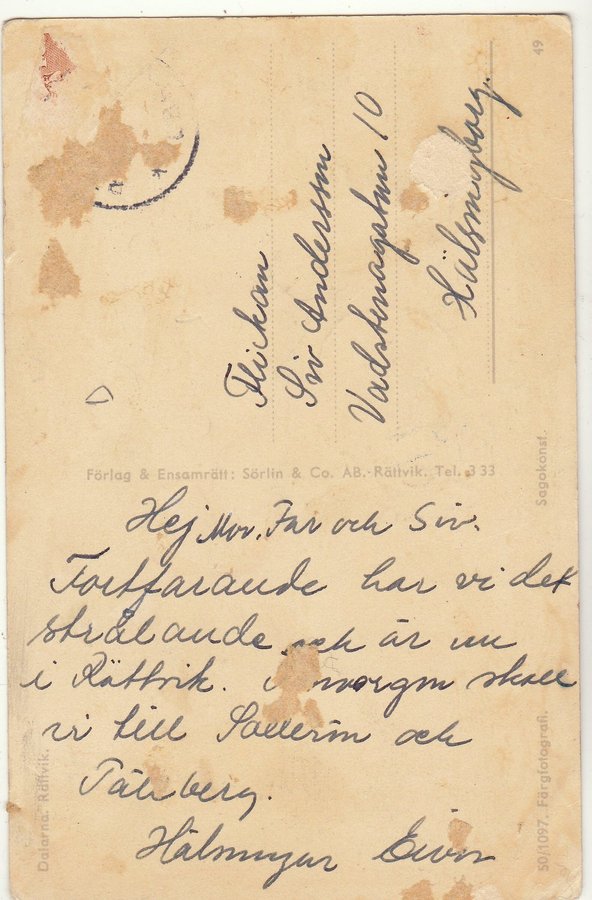 Flickan
Siv Andersson
Vadstenagatan 10
Hälsingborg.
49
Förlag & Ensamrätt: Sörlin & Co. AB.-Rättvik. Tel. 333
Sagokonst.
Hej Mor, Far och Siv.
Fortfarande har vi det
strålande och är nu
i Rättvik. I morgon skall
vi till Sollerön och
Tällberg.
Hälsningar
Dalarna. Rättvik.
50/1097. Färgfotografi.